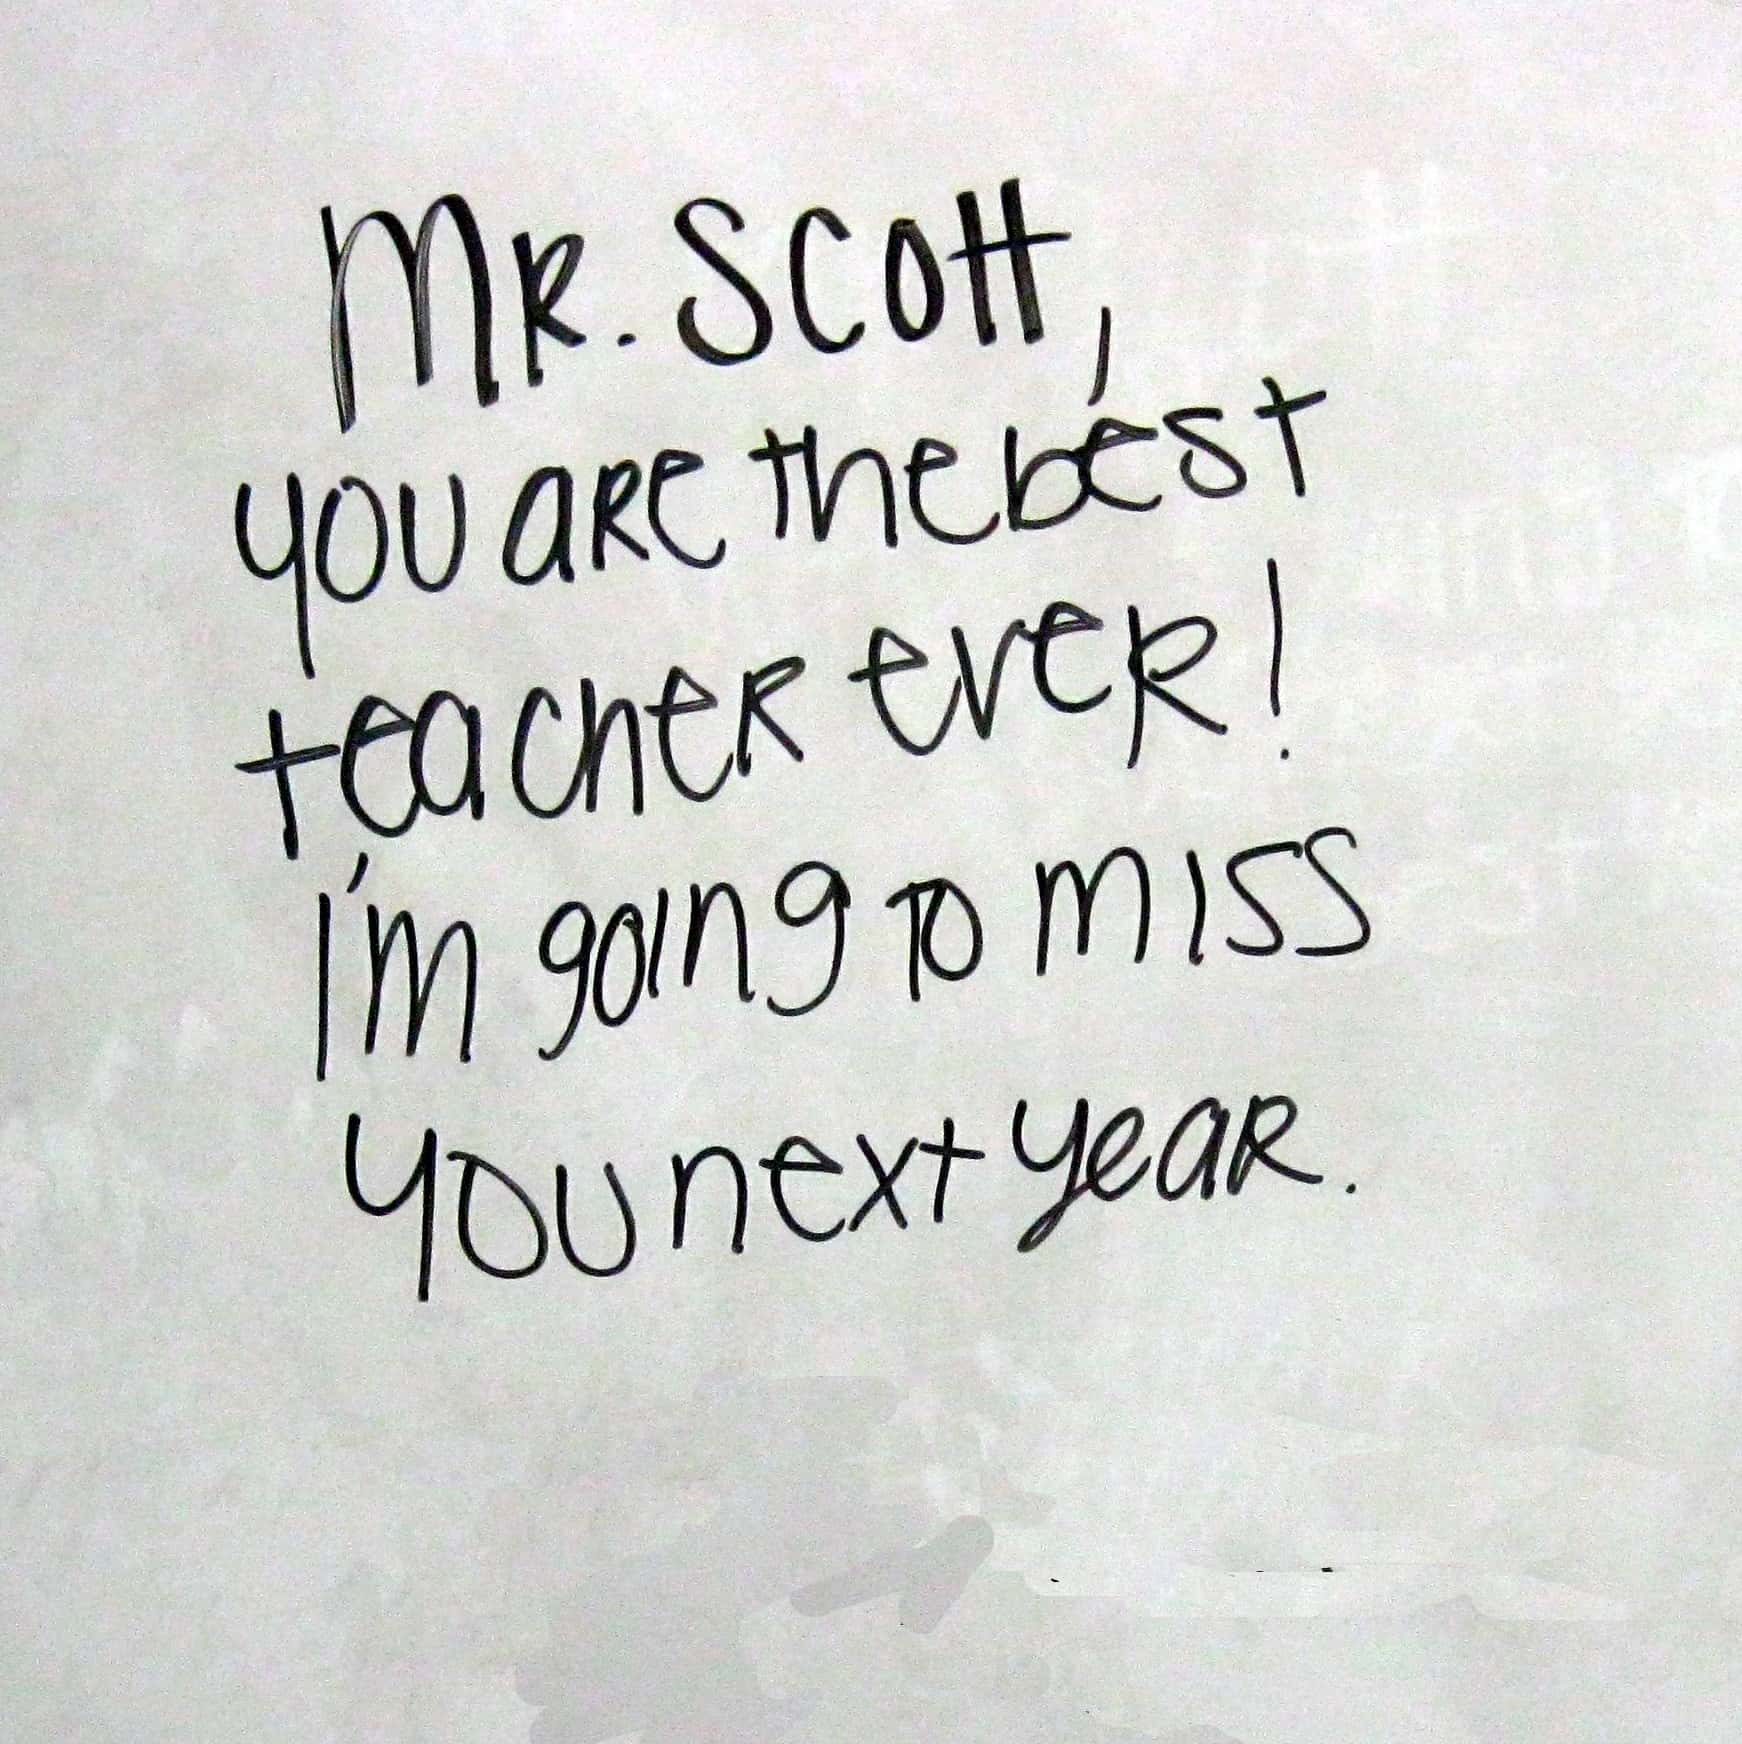 Mr. Scott,
you are the best
teacher ever!
I'm going to miss
you next year.